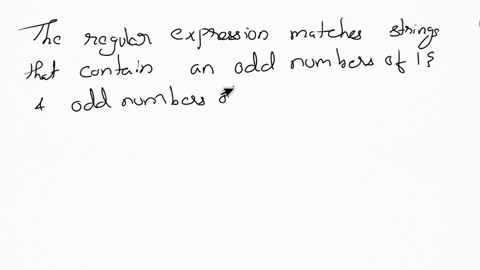 The regular expression matches strings
that contain an odd numbers of 1s
& odd numbers o